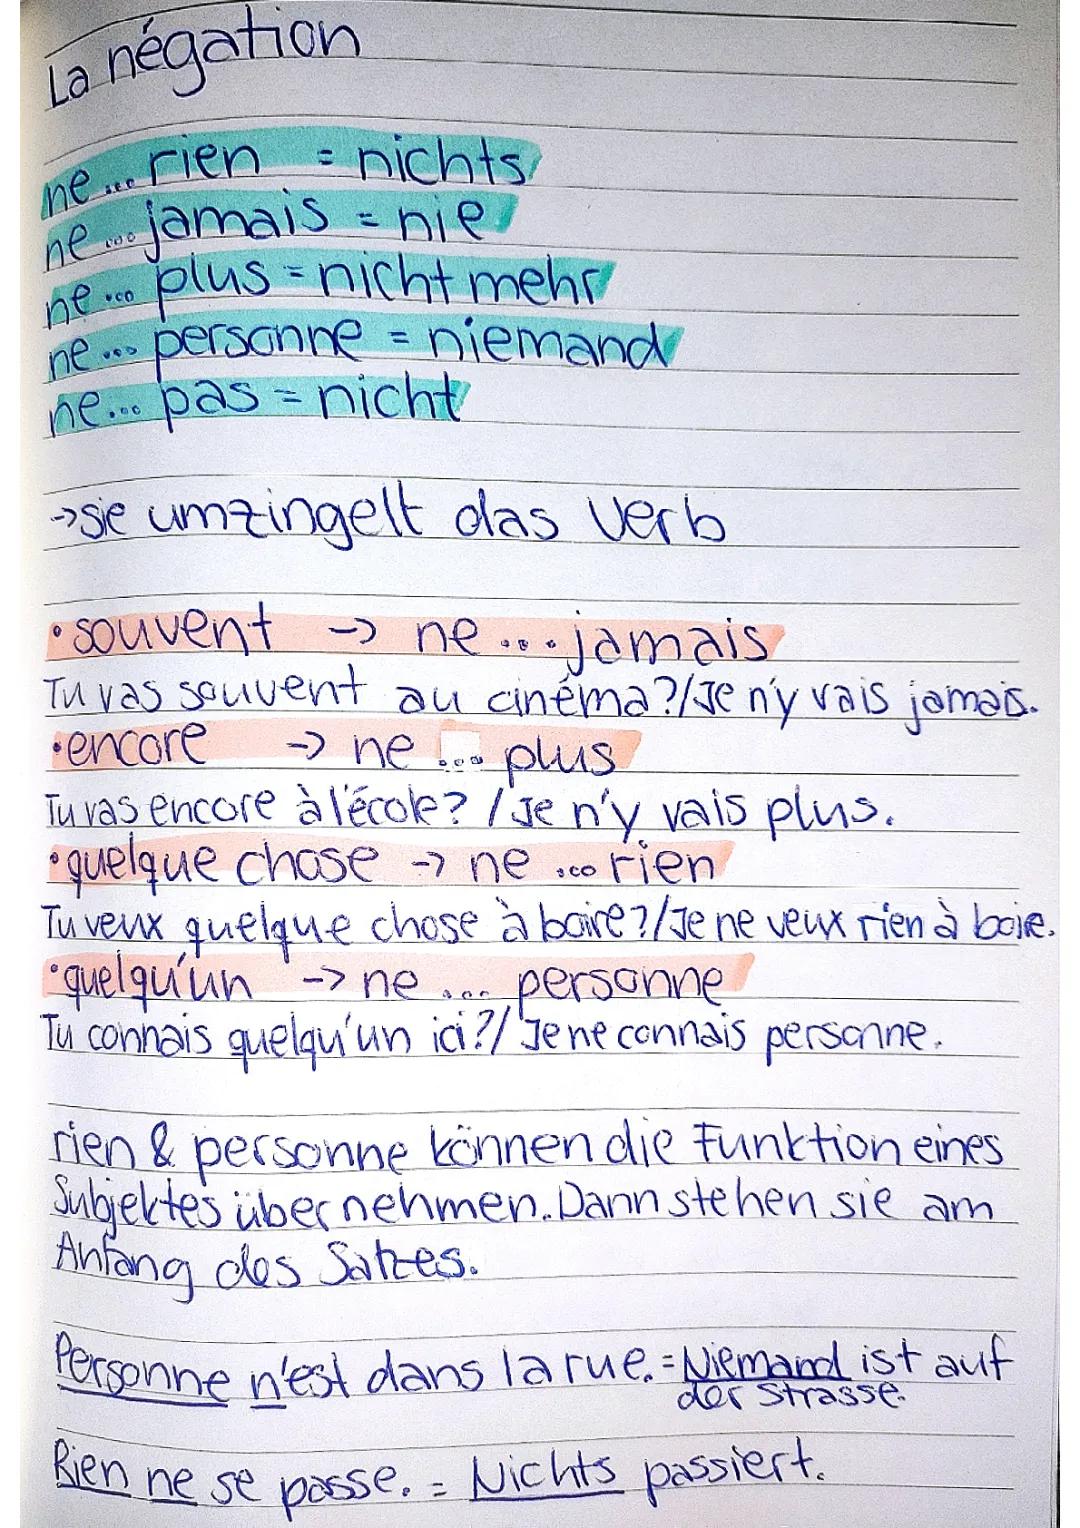 La négation
ne... rien = nichts
ne... jamais = nie
ne... plus = nicht mehr
ne... personne = niemand
ne... pas = nicht
→sie umzingelt das Verb
•souvent → ne ....jamais
Tu vas souvent au cinéma?/Je n'y vais jamais.
•encore → ne ... plus
Tu vas encore à l'école? / Je n'y vais plus.
•quelque chose → ne ... rien
Tu veux quelque chose à boire?/Je ne veux rien à boie.
•quelqu'un → ne ... personne
Tu connais quelqu'un ici?/ Je ne connais personne.
rien & personne können die Funktion eines
Subjektes übernehmen. Dann stehen sie am
Anfang des Satzes.
Personne n'est dans la rue. = Niemand ist auf
der Strasse.
Rien ne se passe. = Nichts passiert.